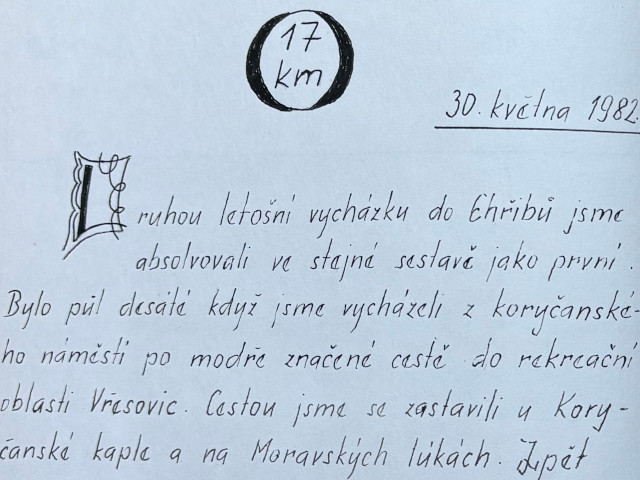 17
km
30. května 1982.
Druhou letošní vycházku do Chřibů jsme
absolvovali ve stejné sestavě jako první.
Bylo půl desáté když jsme vycházeli z koryčanské-
ho náměstí po modře značené cestě do rekreační
oblasti Vřesovic. Cestou jsme se zastavili u Kory-
čanské kaple a na Moravských lúkách. Zpět